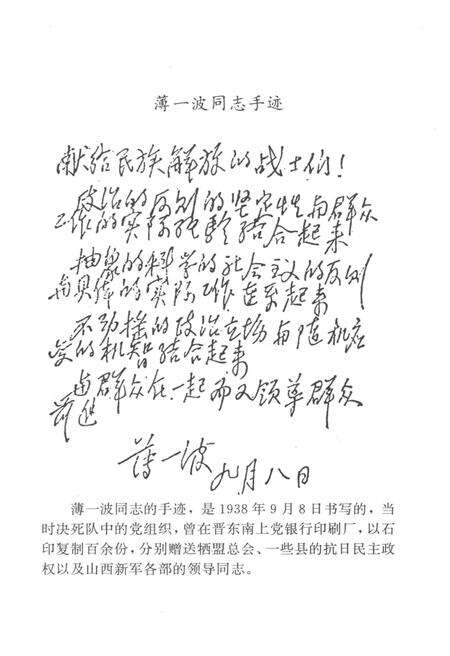 薄一波同志手迹
献给民族解放的战士们！
政治的原则的坚定性与群众
工作的实际经验结合起来
抽象的科学的社会主义的原则
与具体的实际工作连系起来
不动摇的政治立场与随机应
变的机智结合起来
与群众在一起而又领导群众
前进
薄一波 九月八日
薄一波同志的手迹，是1938年9月8日书写的，当
时决死队中的党组织，曾在晋东南上党银行印刷厂，以石
印复制百余份，分别赠送牺盟总会、一些县的抗日民主政
权以及山西新军各部的领导同志。